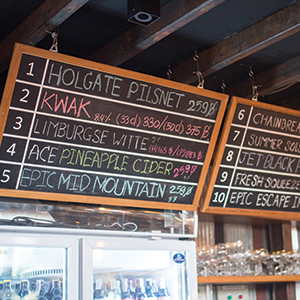 1 HOLGATE PILSNET 259฿
2 KWAK 8.4% (33cl) 230/(50cl) 375฿
3 LIMBURGSE WITTE
4 ACE PINEAPPLE CIDER 259฿
5 EPIC MID MOUNTAIN 259฿
6 CHAINBREA
7 SUMMER SOU
8 JET BLACK
9 FRESH SQUEEZE
10 EPIC ESCAPE IN